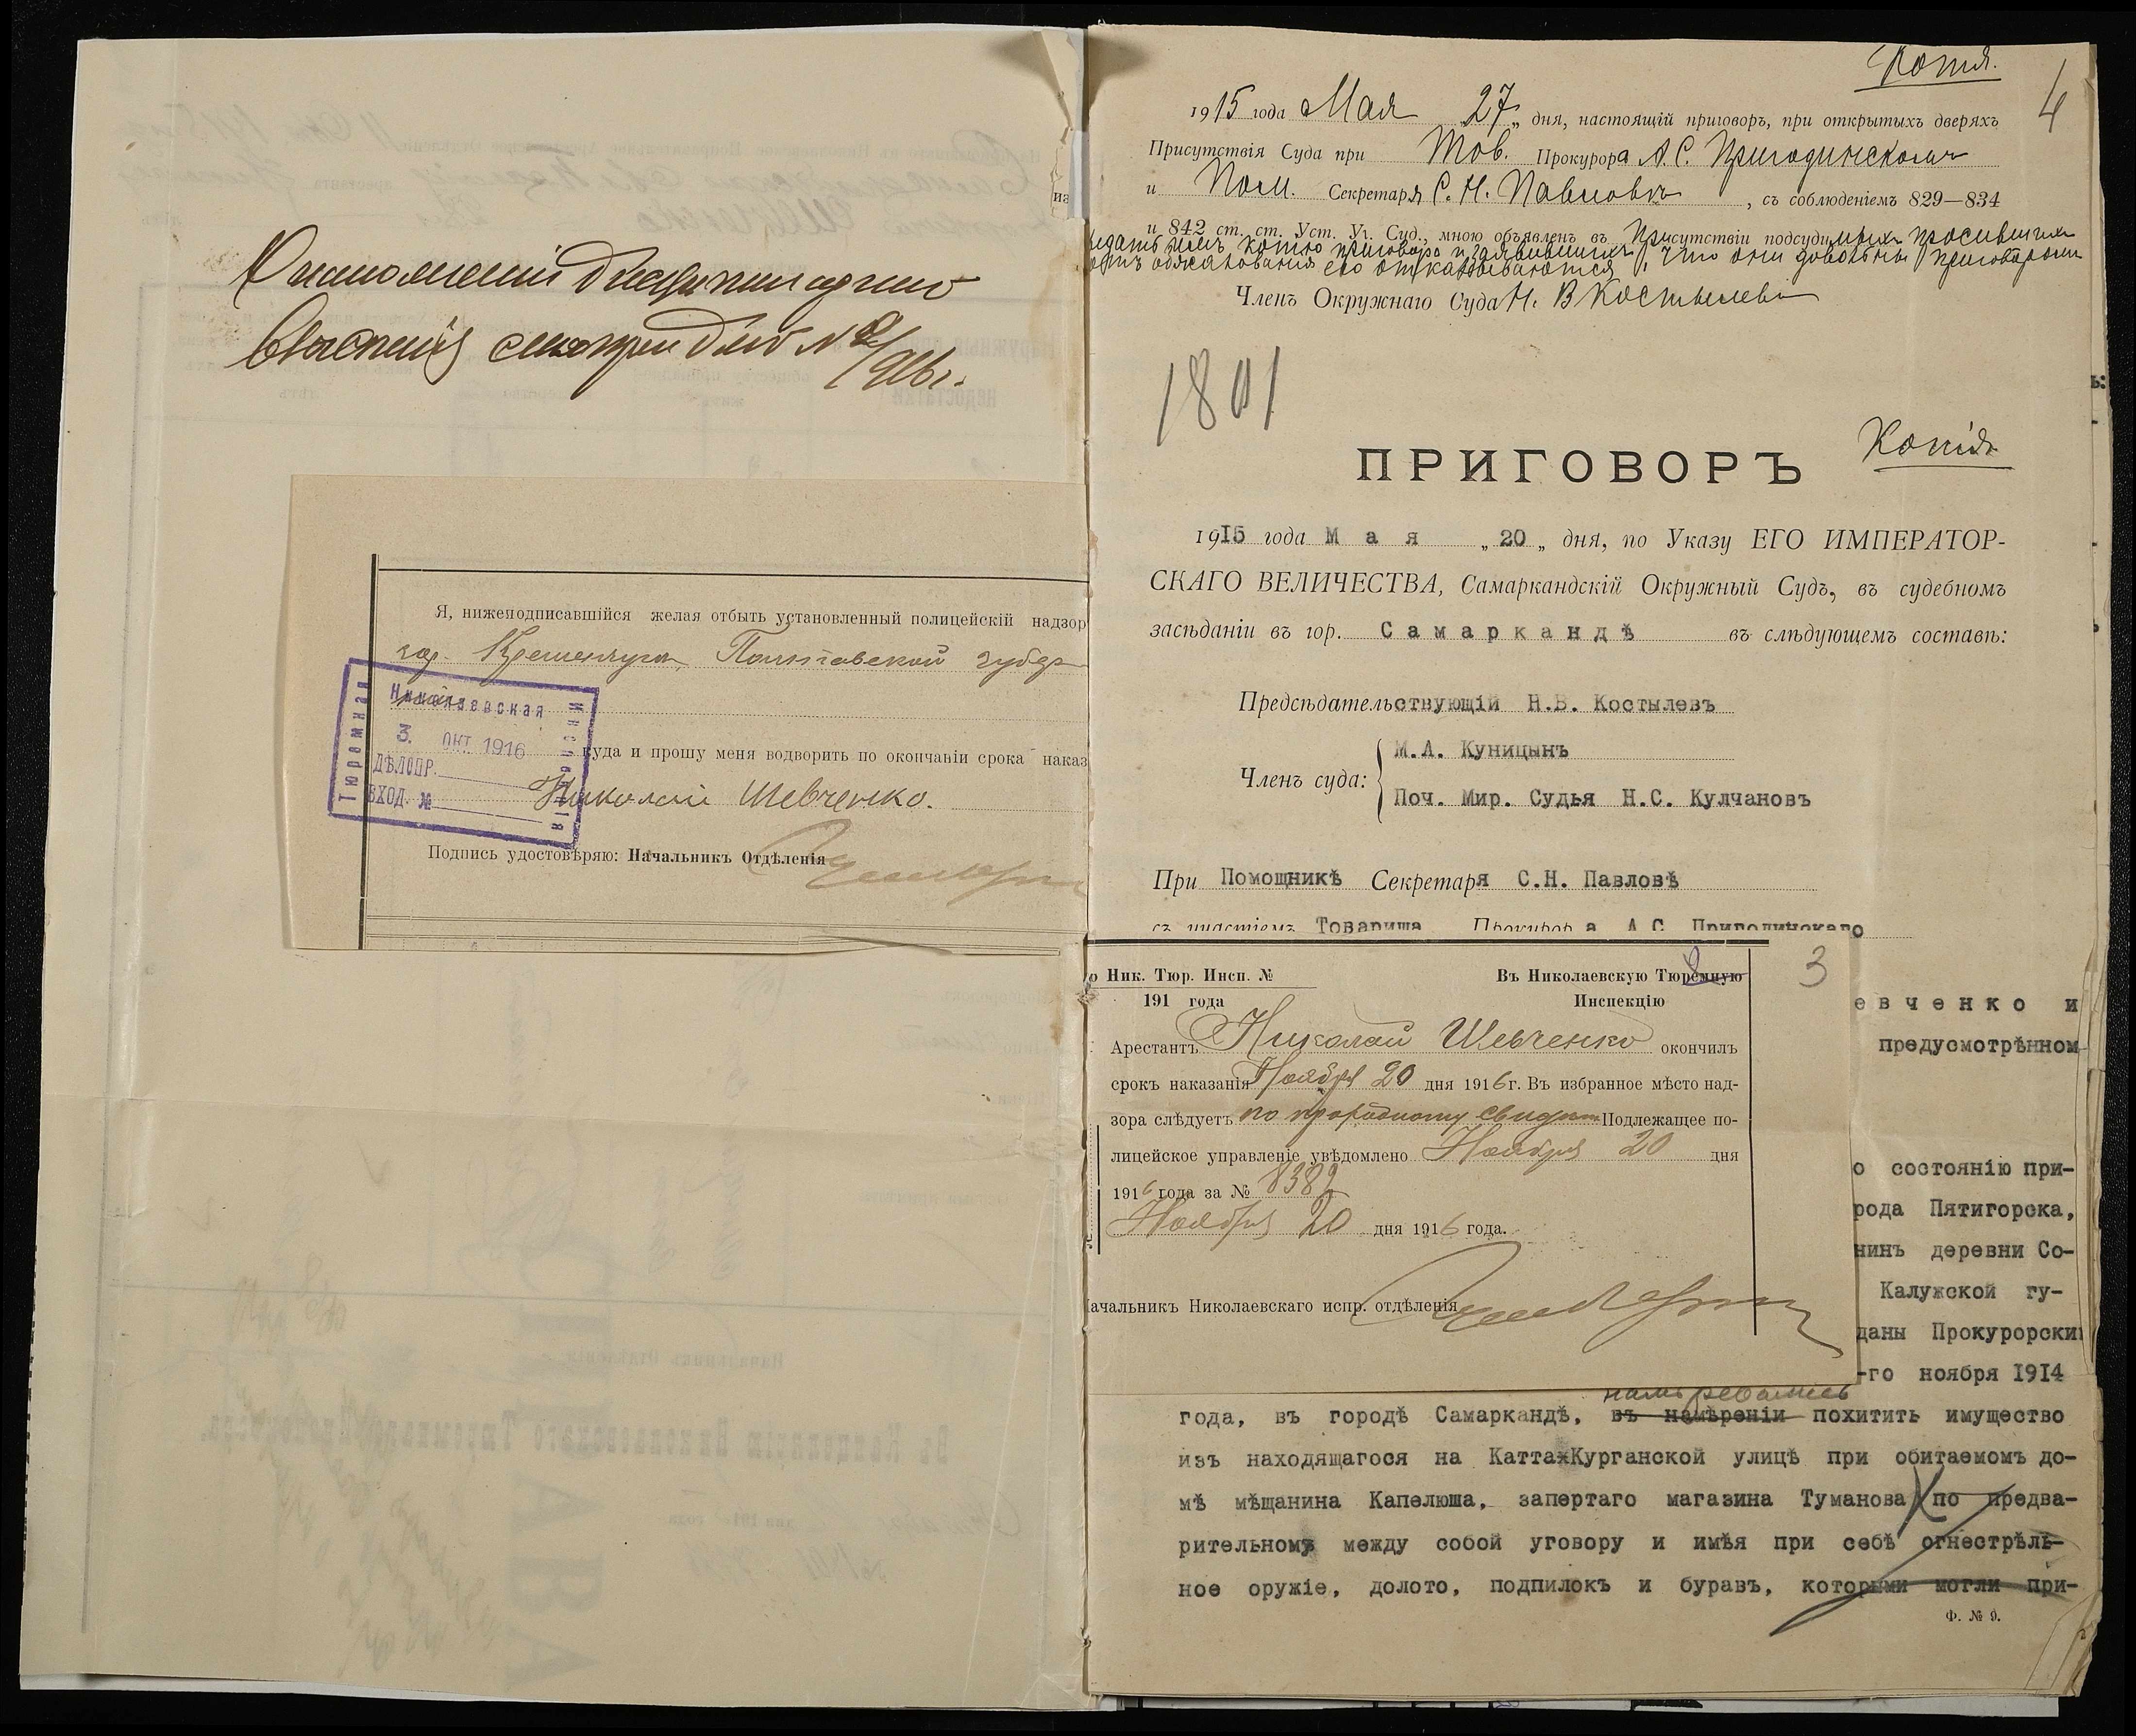 О наложеніи
смотри дѣло №
1916 г.
Я, нижеподписавшійся желая отбыть установленный полицейскій надзор
гор. Кременчугъ Полтавской губер
куда и прошу меня водворить по окончаніи срока наказ
Николай Шевченко.
Подпись удостовѣряю: Начальникъ Отдѣленія
Николаевская
Тюремная
Инспекція
3. ОКТ 1916
ДѢЛОПР.
ВХОД. №
Копія.
4
1915 года Мая „27„ дня, настоящій приговоръ, при открытыхъ дверяхъ
Присутствія Суда при Тов. Прокурора А.С. Пригодинскомъ
и Пом. Секретаря С.Н. Павловѣ, съ соблюденіемъ 829—834
и 842 ст. ст. Уст. Уг. Суд., мною объявленъ въ присутствіи подсудимыхъ просившихъ
выдать имъ копію приговора и заявившихъ, что они довольны приговоромъ
отъ обжалованія его отказываются.
Членъ Окружнаго Суда Н. В Костылевъ
1801
Копія
ПРИГОВОРЪ
1915 года Мая „20„ дня, по Указу ЕГО ИМПЕРАТОР-
СКАГО ВЕЛИЧЕСТВА, Самаркандскій Окружный Судъ, въ судебномъ
засѣданіи въ гор. Самаркандѣ въ слѣдующемъ составѣ:
Предсѣдательствующій Н.В. Костылевъ
Членъ суда: М.А. Куницынъ
Поч. Мир. Судья Н.С. Кулчановъ
При Помощникѣ Секретаря С.Н. Павловѣ
съ участіемъ Товарища Прокурора А.С. Пригодинскаго
Ник. Тюр. Инсп. №
191 года
Въ Николаевскую Тюремную
Инспекцію
3
Арестантъ Николай Шевченко окончилъ
срокъ наказанія Ноября 20 дня 1916 г. Въ избранное мѣсто над-
зора слѣдуетъ по проходному свидѣт. Подлежащее по-
лицейское управленіе увѣдомлено Ноября 20 дня
1916 года за № 8382
Ноября 20 дня 1916 года.
Начальникъ Николаевскаго испр. отдѣленія
евченко и
предусмотрѣнном
о состоянію при-
рода Пятигорска,
нинъ деревни Со-
Калужской гу-
даны Прокурорски
-го ноября 1914
намѣреваясь
года, въ городѣ Самаркандѣ, въ намѣреніи похитить имущество
изъ находящагося на Катта-Курганской улицѣ при обитаемомъ до-
мѣ мѣщанина Капелюша, запертаго магазина Туманова по предва-
рительному между собой уговору и имѣя при себѣ огнестрѣль-
ное оружіе, долото, подпилокъ и буравъ, которыми могли при-
Ф. № 9.